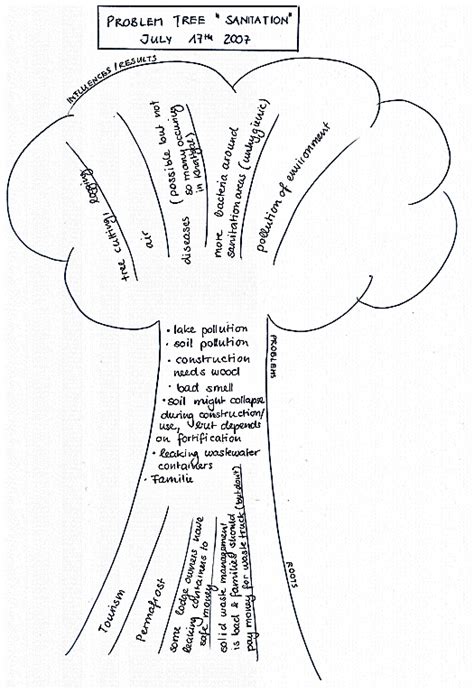 PROBLEM TREE "SANITATION"
JULY 17TH 2007
INFLUENCES/RESULTS
tree cutting/
air
diseases (possible but not
so many occuring
more bacteria around
sanitation areas (unhygienic)
pollution of environment
PROBLEMS
• lake pollution
• soil pollution
• construction
needs wood
• bad smell
• soil might collapse
during construction/
use, but depends
on fortification
• leaking wastewater
containers
• Familie
ROOTS
Tourism
Permafrost
some lodge owners have
leaking containers to
safe money
solid waste management
is bad & families should
pay money for waste truck (but don't)